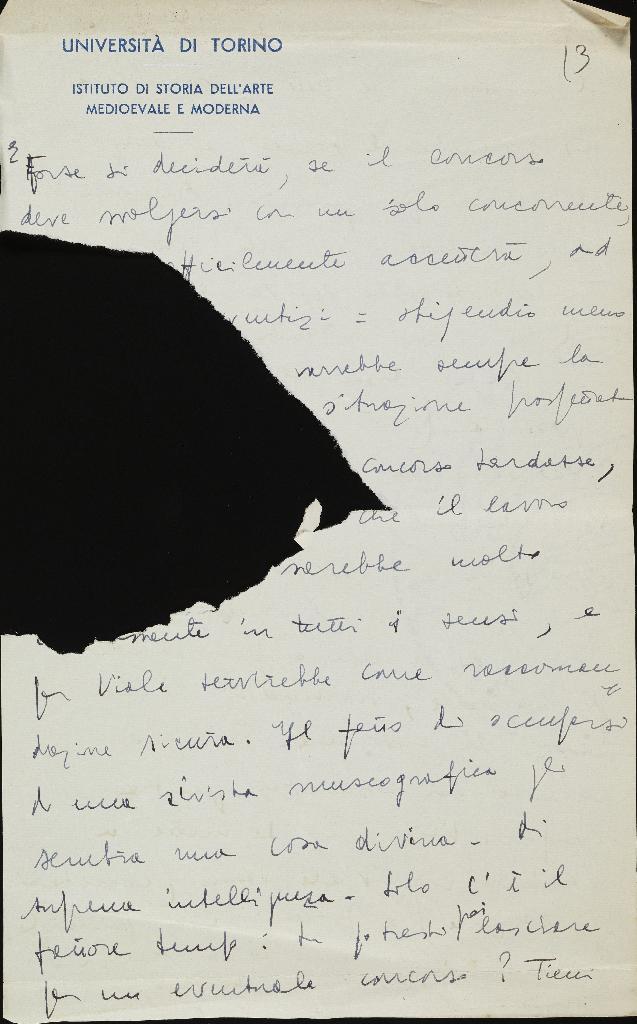 UNIVERSITÀ DI TORINO
13
ISTITUTO DI STORIA DELL'ARTE
MEDIOEVALE E MODERNA
2
Forse si deciderà, se il concorso
deve svolgersi con un solo concorrente,
fficilmente accetterà, ad
ventizi = stipendio meno
varrebbe sempre la
situazione
concorso tardasse,
che il lavoro
sarebbe molto
mente in tutti i sensi, e
per Viale servirebbe come raccoman
dazione sicura. Il fatto di occuparsi
di una rivista museografica gli
sembra una cosa divina - di
suprema intelligenza. Solo c'è il
fattore tempo: tu potresti poi lasciare
per un eventuale concorso? Tieni